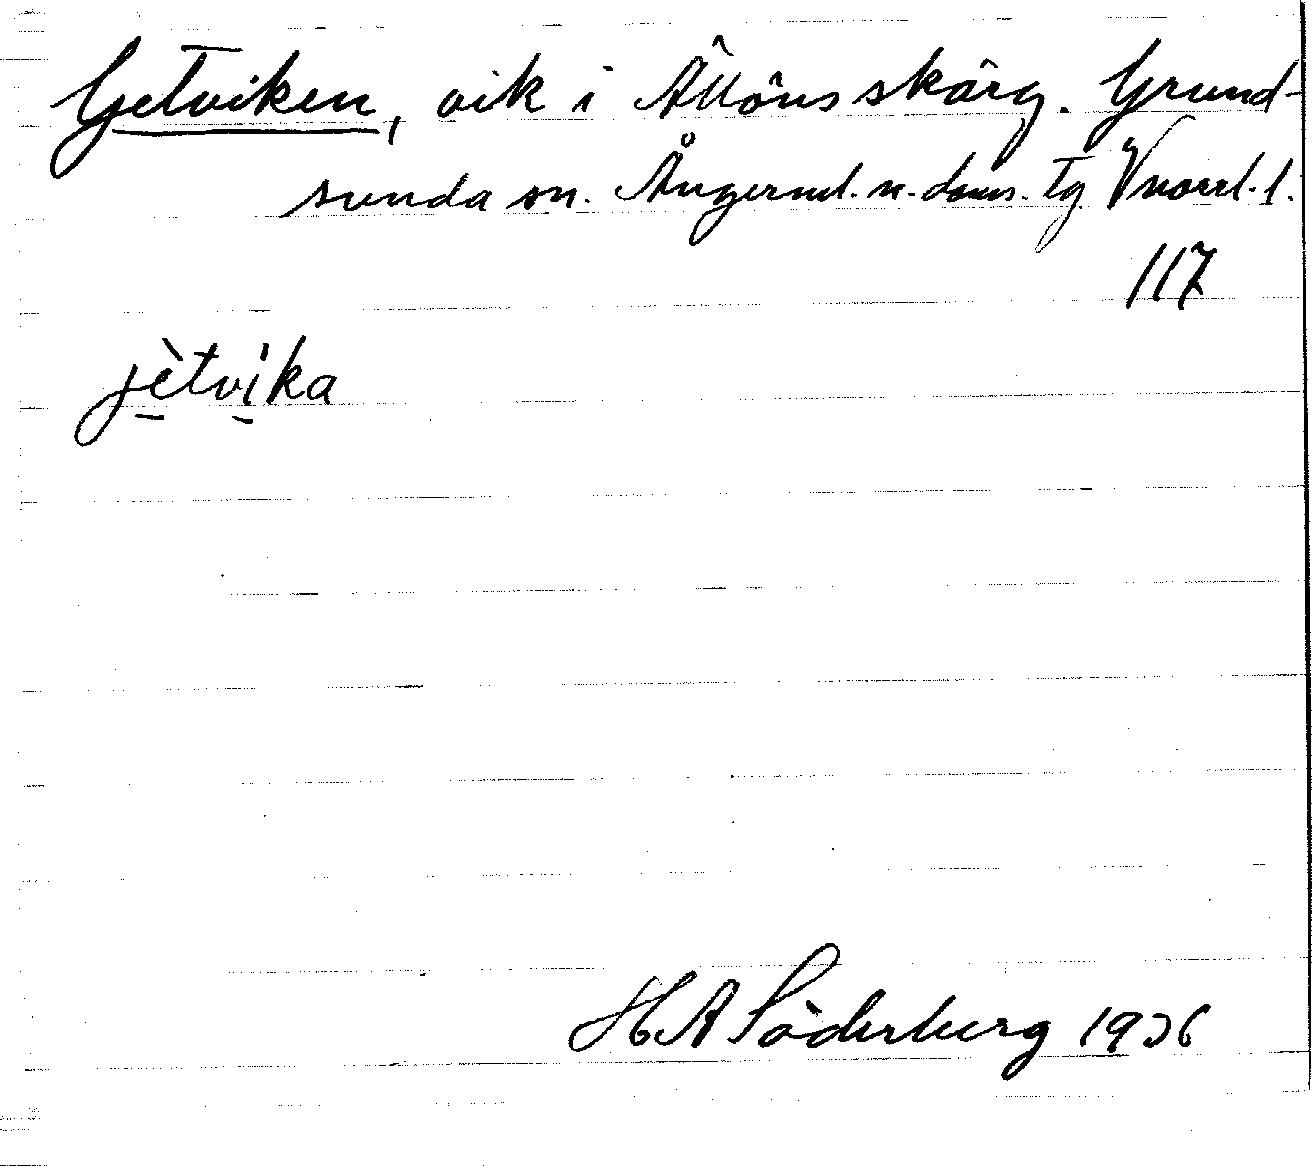 Getviken, vik i Ållöns skärg. Grund-
sunda sn. Ångerml. n. doms. tg Vnorrl. l.
117
jètvika
H A Söderberg 1936